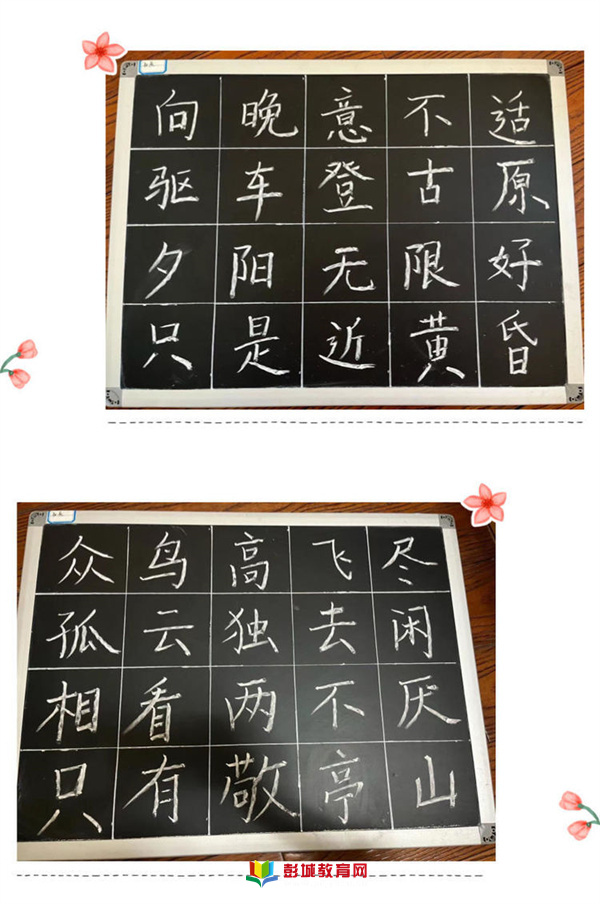 向晚意不适
驱车登古原
夕阳无限好
只是近黄昏
众鸟高飞尽
孤云独去闲
相看两不厌
只有敬亭山
彭城教育网